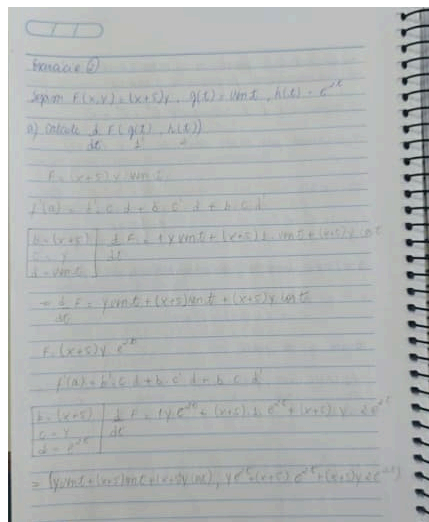 Exercício 2
Sejam F(x,y) = (x+5)y, g(t) = sen t, h(t) = e^{2t}
a) Calcule d/dt F(g(t), h(t))
F = (x+5) y sen t
f'(a) = b' c d + b c' d + b c d'
b = (x+5) d/dt F = 1 y sen t + (x+5) 1 sen t + (x+5) y cos t
c = y
d = sen t
= d/dt F = y sen t + (x+5) sen t + (x+5) y cos t
F = (x+5) y e^{2t}
f'(a) = b' c d + b c' d + b c d'
b = (x+5) d/dt F = 1 y e^{2t} + (x+5) 1 e^{2t} + (x+5) y 2 e^{2t}
c = y
d = e^{2t}
= (y sen t + (x+5) sen t + (x+5) y cos t, y e^{2t} + (x+5) e^{2t} + (x+5) y 2 e^{2t})